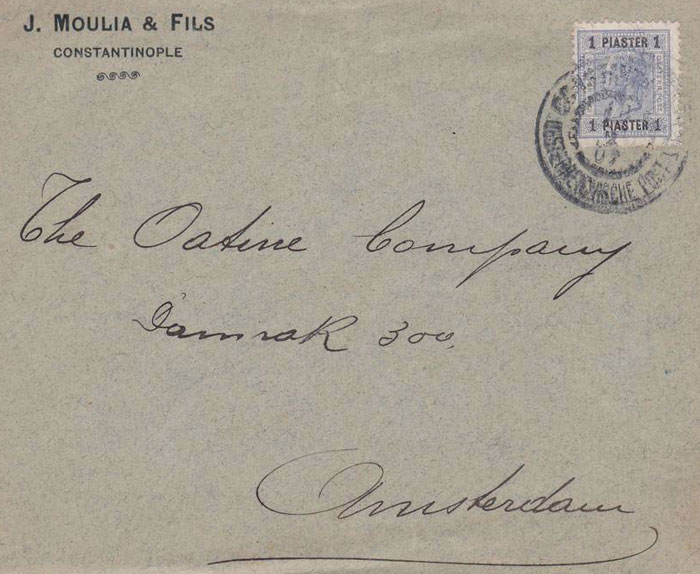 J. MOULIA & FILS
CONSTANTINOPLE
1 PIASTER 1
1 PIASTER 1
ÖSTERREICHISCHE POST I
07
The Oatine Company
Damrak 300.
Amsterdam